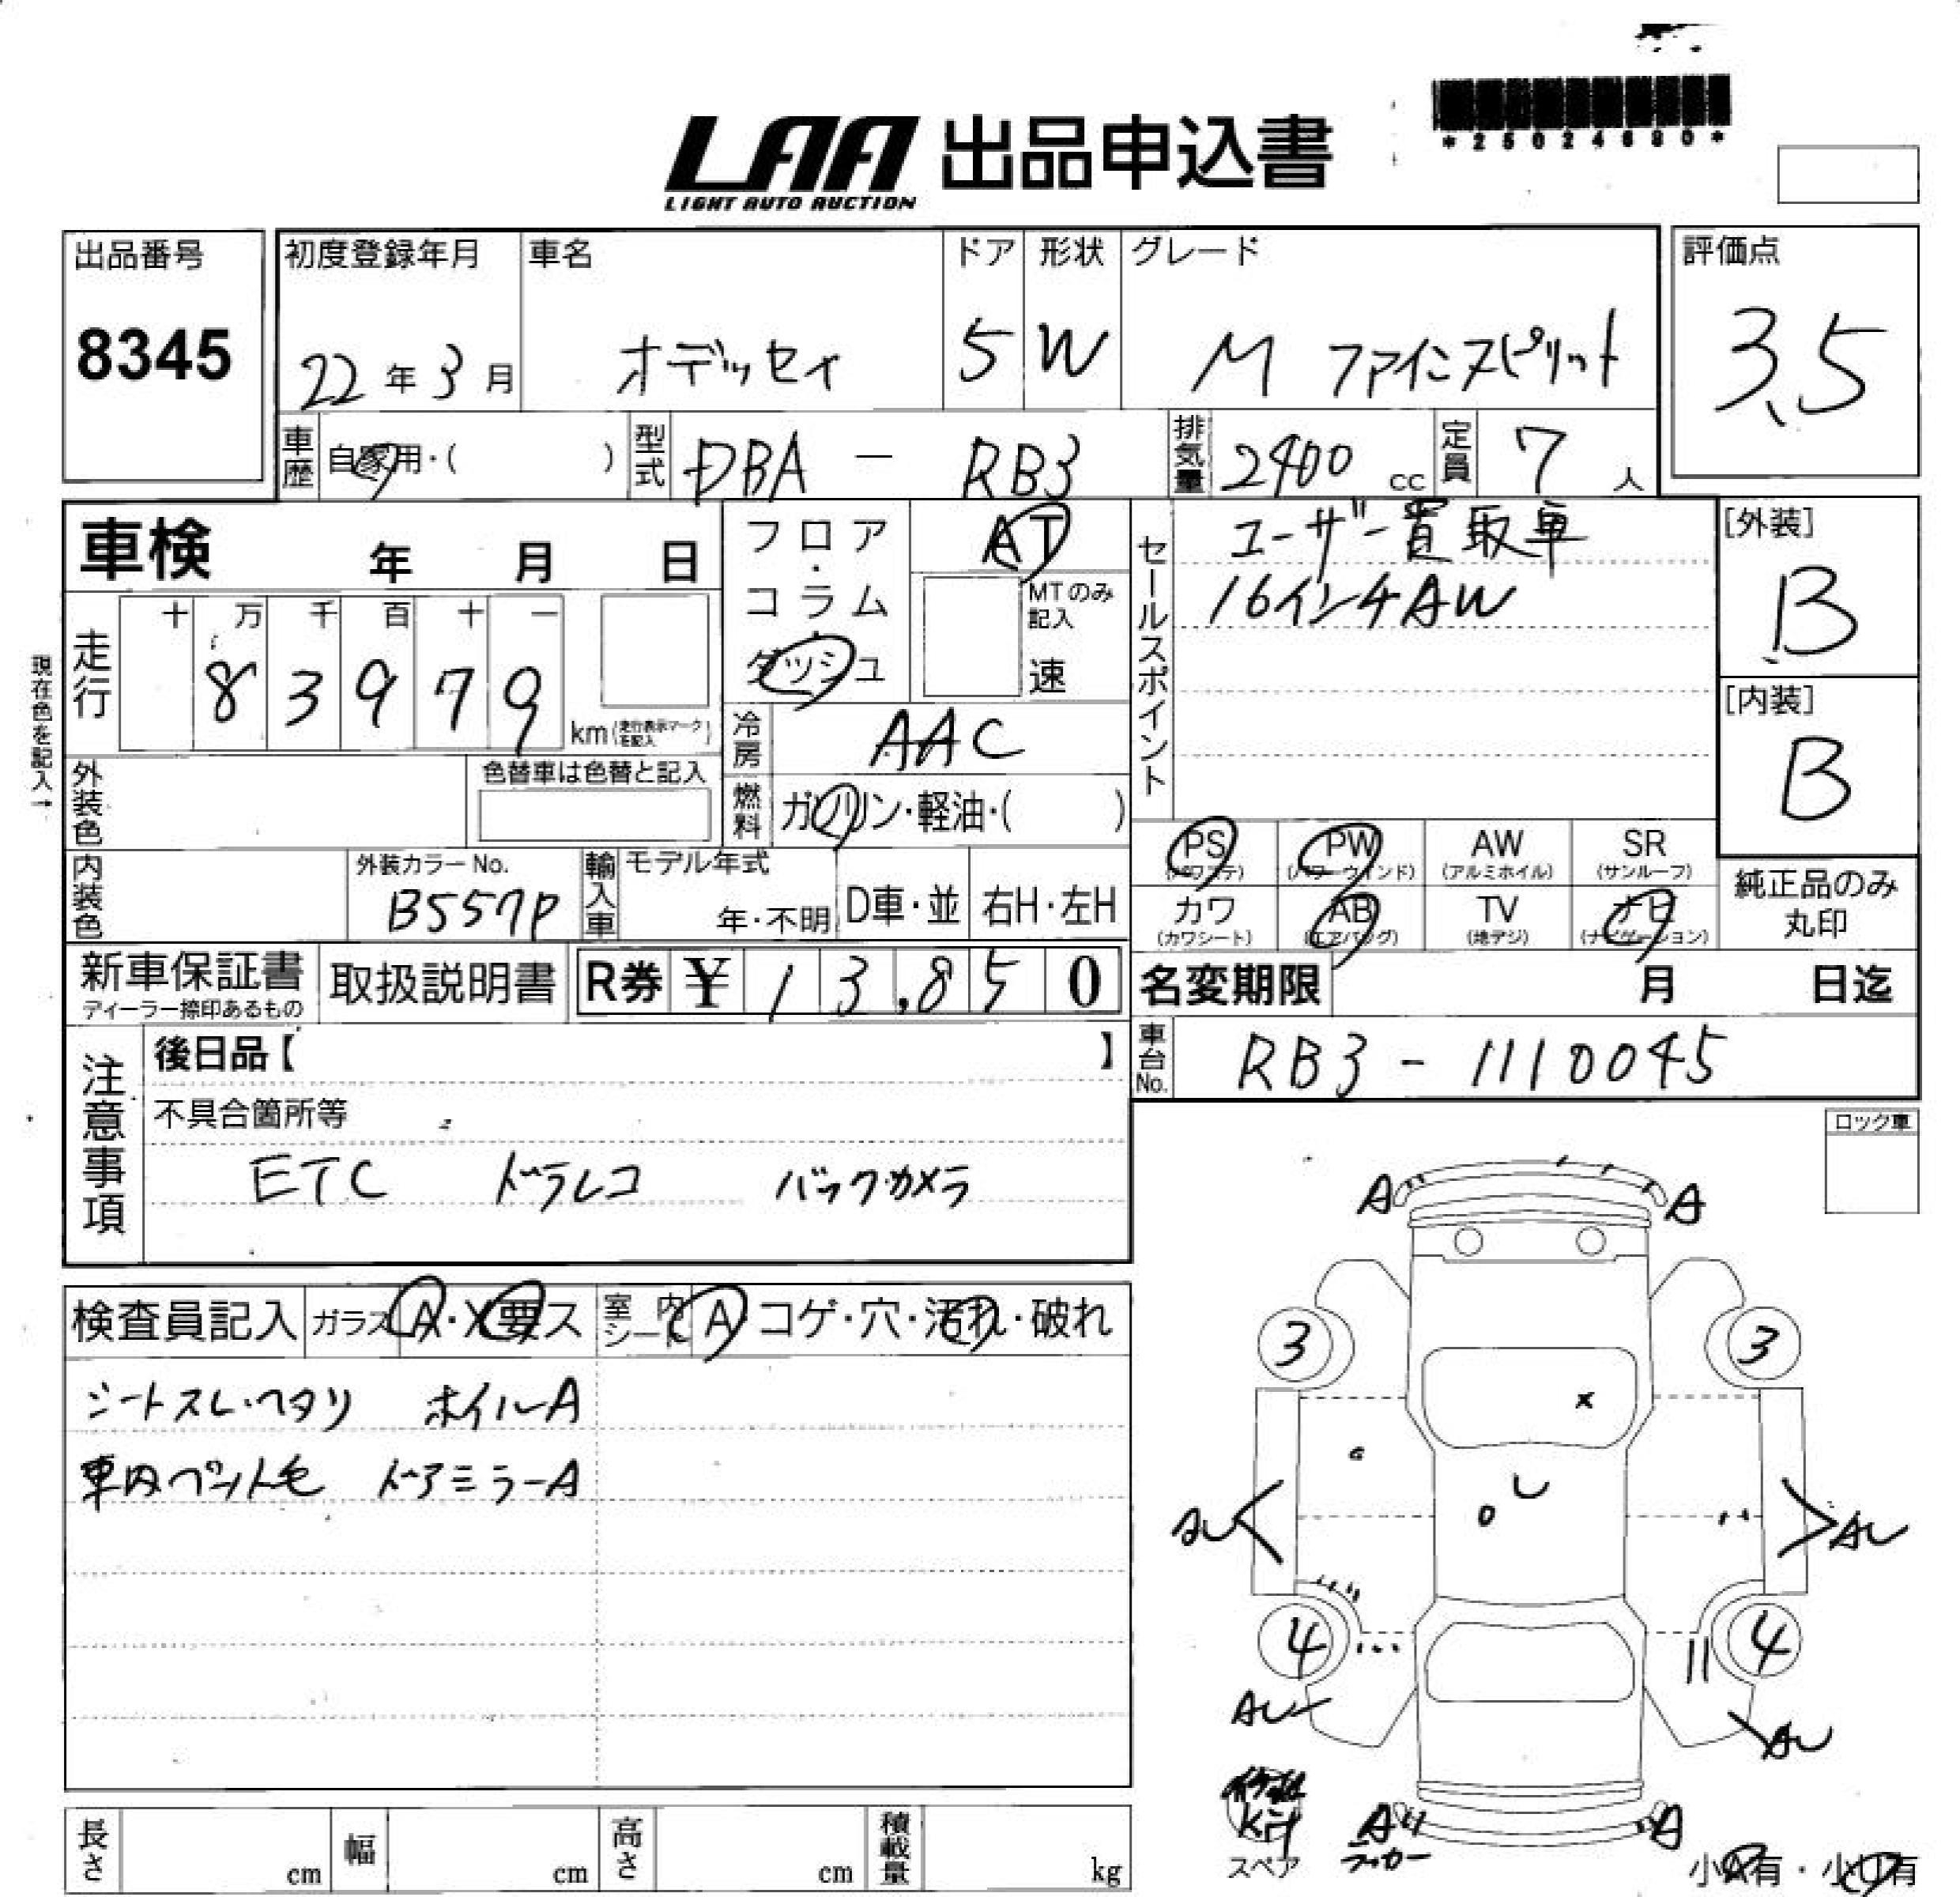 LAA 出品申込書
LIGHT AUTO AUCTION
*25024680*
出品番号
8345
初度登録年月
22年3月
車名
オデッセイ
ドア
5
形状
W
グレード
M ファインスピリット
評価点
3.5
車歴
自家用・( )
型式
DBA － RB3
排気量
2400 cc
定員
7人
車検 年 月 日
フロア・コラム・ダッシュ
AT
MTのみ記入
速
セールスポイント
ユーザー買取車
16インチAW
[外装]
B
[内装]
B
現在色を記入→
走行
十 万 千 百 十 一
8 3 9 7 9
km(走行表示マークを記入)
冷房
AAC
外装色
色替車は色替と記入
燃料
ガソリン・軽油・( )
内装色
外装カラーNo.
B557P
輸入車
モデル年式
年・不明
D車・並
右H・左H
PS (パワステ)
PW (パワーウインド)
AW (アルミホイル)
SR (サンルーフ)
カワ (カワシート)
AB (エアバッグ)
TV (地デジ)
ナビ (ナビゲーション)
純正品のみ
丸印
新車保証書
ディーラー捺印あるもの
取扱説明書
R券 ¥ 13,850
名変期限 月 日迄
車台No.
RB3 - 1110045
注意事項
後日品【 】
不具合箇所等
ETC ドラレコ バックカメラ
ロック車
検査員記入
ガラス A・X要ス
室内シート A コゲ・穴・汚れ・破れ
シートスレ・ヘタリ ホイルA
車内ペット毛 ドアミラーA
A A
3 3
x
AU AU
4 4
AU AU
Kit
スペア
A A
ラッカー
小A有・小U有
長さ cm
幅 cm
高さ cm
積載量 kg